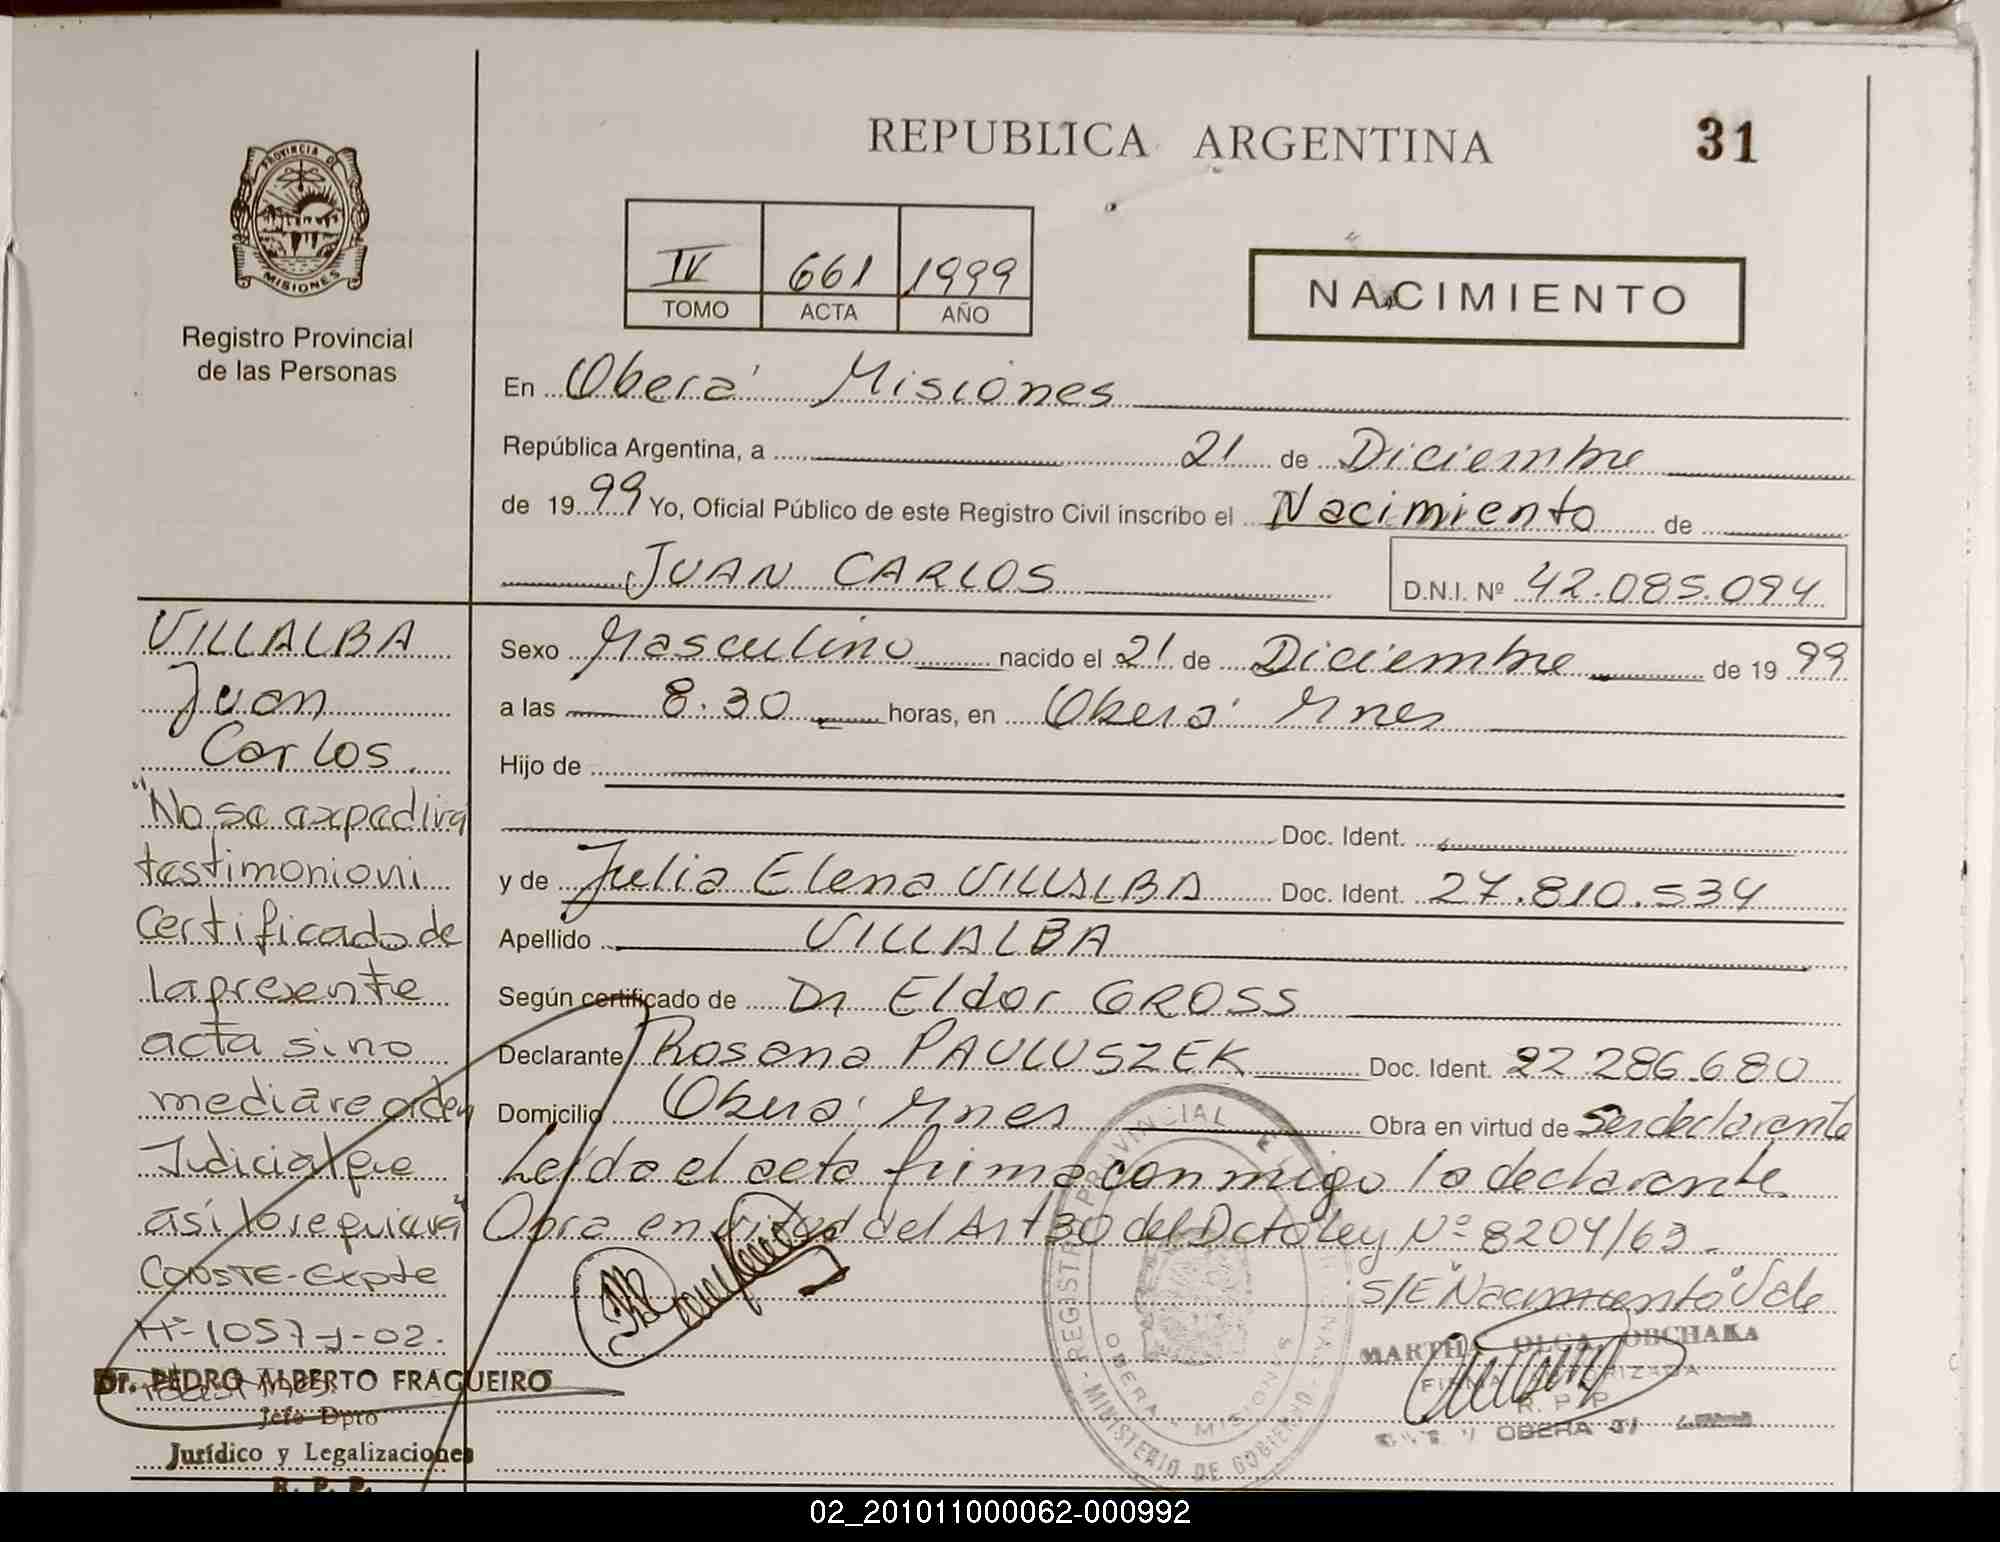 REPUBLICA ARGENTINA
31
PROVINCIA D
MISIONES
Registro Provincial
de las Personas
IV 661 1999
TOMO ACTA AÑO
NACIMIENTO
En Oberá Misiones
República Argentina, a 21 de Diciembre
de 1999 Yo, Oficial Público de este Registro Civil inscribo el Nacimiento de
JUAN CARLOS
D.N.I. Nº 42.085.094
Sexo Masculino nacido el 21 de Diciembre de 1999
a las 8.30 horas, en Oberá Mnes
Hijo de
Doc. Ident.
y de Julia Elena VILLALBA Doc. Ident. 27.810.534
Apellido VILLALBA
Según certificado de Dr Eldor GROSS
Declarante Rosana PAULUSZEK Doc. Ident. 22 286.680
Domicilio Oberá Mnes Obra en virtud de Ser declarante
Leída el acta firma conmigo la declarante
Obra en virtud del Art 30 del Dcto ley Nº 8204/63.
S/E "Nacimiento" Vale
VILLALBA
Juan
Carlos.
"No se expedira
testimonio ni
certificado de
la presente
acta sino
mediare orden
Judicial que
así lo requiera"
CONSTE-Expte
Nº-1057-J-02.
Dr. PEDRO ALBERTO FRAGUEIRO
Jefe Dpto
Jurídico y Legalizaciones
R. P. P.
REGISTRO PROVINCIAL
OBERA - MISIONES
- MINISTERIO DE GOBIERNO -
MARTHA OLGA OBCHAKA
FIRMA AUTORIZADA
R. P. P.
OBERA
02_201011000062-000992